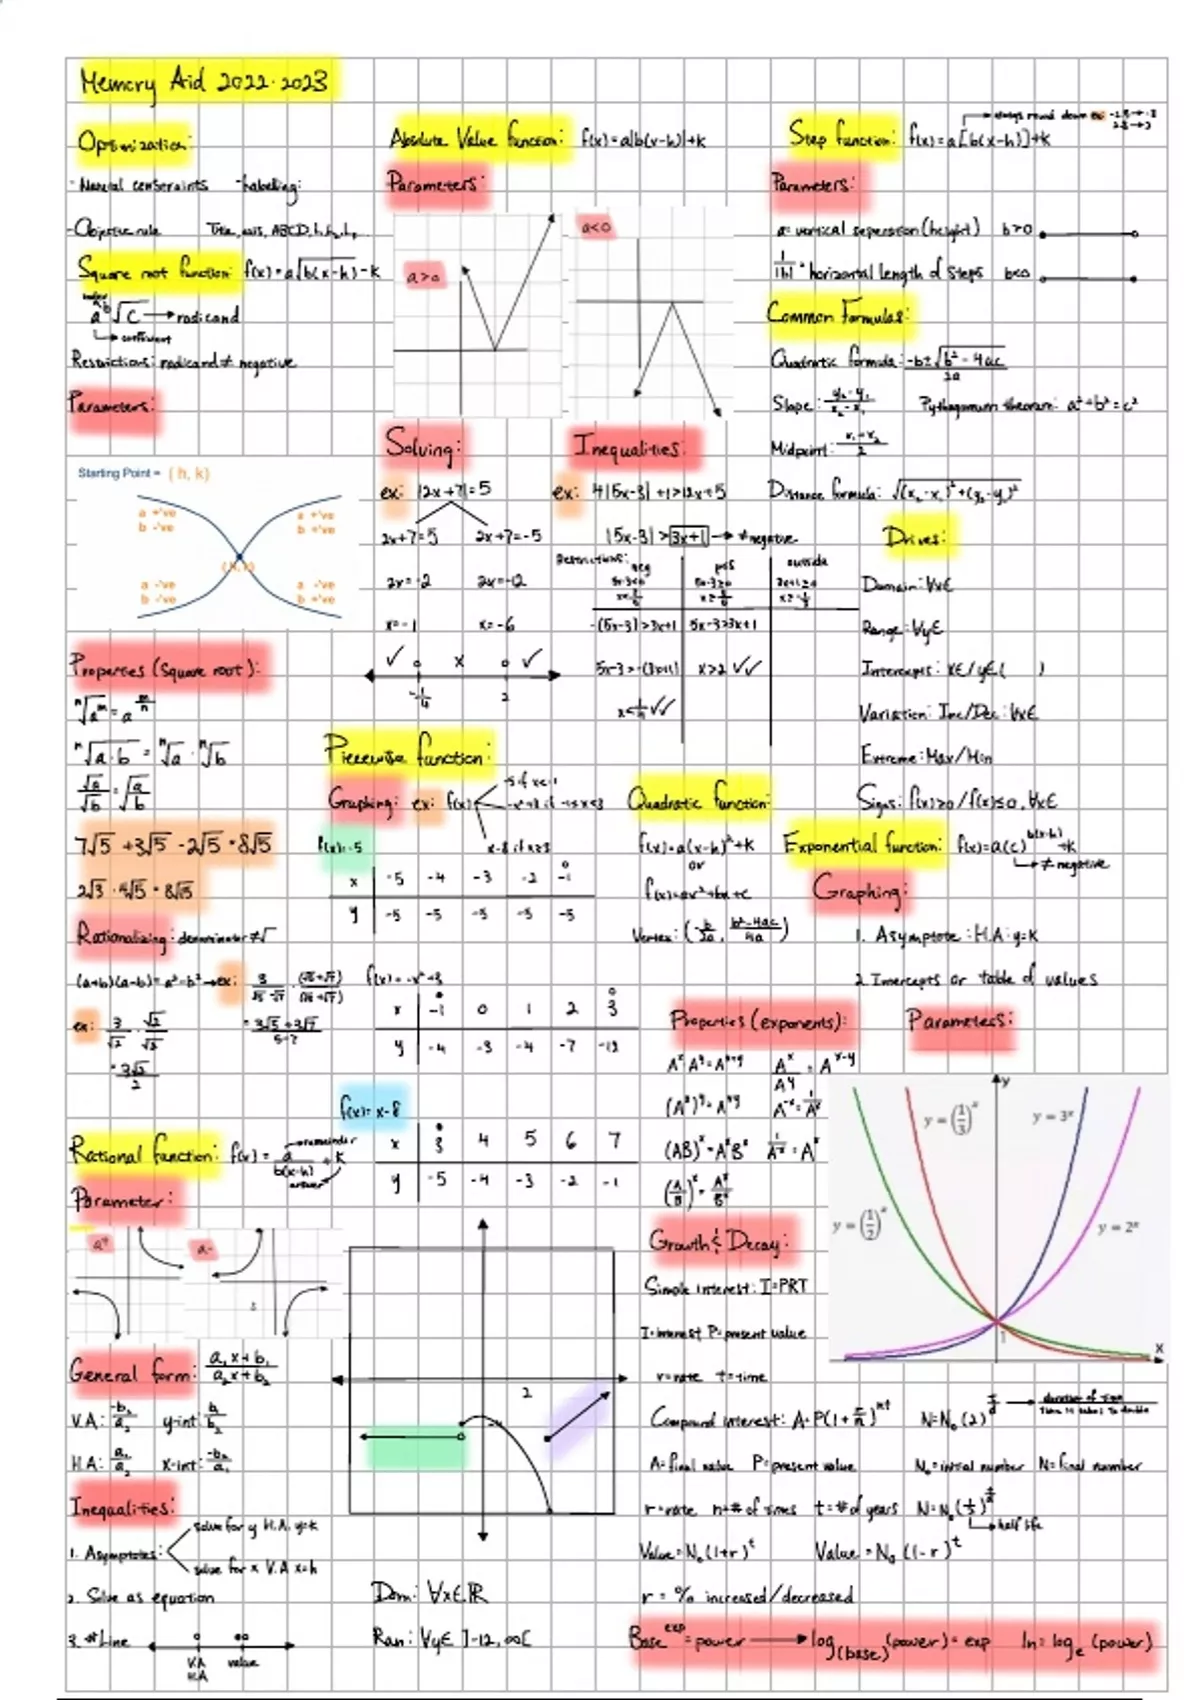 Memory Aid 2022-2023
Optimization:
- Nanial constraints - labelling:
- Objective rule Title, axis, ABCD, h₁, h₂, h₃
Square root function: f(x)=a√b(x-h) -k
index
a ᵇ√C → radicand
↳ coefficient
Restrictions: radicand ≠ negative
Parameters:
Starting Point = (h, k)
a +'ve a +'ve
b -'ve b +'ve
(h, k)
a -'ve a -'ve
b -'ve b +'ve
Properties (square root):
ⁿ√aᵐ = a^(m/n)
ⁿ√a·b = ⁿ√a · ⁿ√b
√a/√b = √(a/b)
7√5 + 3√5 - 2√5 = 8√5
2√3 · 4√5 = 8√15
Rationalizing: denominator ≠ √
(a+b)(a-b) = a²-b² → ex: 3/(√5-√7) · (√5+√7)/(√5+√7)
= (3√5+3√7)/(5-7)
ex: 3/√2 · √2/√2
= 3√2/2
Rational function: f(x) = a/(b(x-h)) + k
remainder
answer
Parameter:
a+ a-
General form: (a₁x+b₁)/(a₂x+b₂)
V.A: -b₂/a₂ y-int: b₁/b₂
H.A: a₁/a₂ x-int: -b₁/a₁
Inequalities:
1. Asymptotes: solve for y H.A. y=k
solve for x V.A x=h
2. Solve as equation
3. #Line
V.A value
H.A
Absolute Value function: f(x)=a|b(x-h)|+k
Parameters:
a>0 a<0
Solving:
ex: |2x+7|=5
2x+7=5 2x+7=-5
2x=-2 2x=-12
x=-1 x=-6
✓ x ✓
-1/4 2
Inequalities:
ex: 4|5x-3|+1>12x+5
|5x-3|>3x+1 → ≠negative
Restrictions: neg pos outside
5x-3<0 5x-3≥0 3x+1≥0
x<3/5 x≥3/5 x≥-1/3
-(5x-3)>3x+1 5x-3>3x+1
5x-3>-(3x+1) x>2 ✓✓
x<1/4 ✓✓
Piecewise function:
Graphing: ex: f(x) -5 if x<-1
-x²+3 if -1≤x≤3
x-8 if x≥3
f(x)=-5
x -5 -4 -3 -2 -1
y -5 -5 -5 -5 -5
f(x)=-x²+3
x -1 0 1 2 3
y -4 -3 -4 -7 -12
f(x)=x-8
x 3 4 5 6 7
y -5 -4 -3 -2 -1
2
Dom: ∀x∈ℝ
Ran: ∀y∈ ]-12,∞[
Quadratic function:
f(x)=a(x-h)²+k
or
f(x)=ax²+bx+c
Vertex: (-b/2a, b²-4ac/4a)
Step function: f(x)=a[b(x-h)]+k
always round down
Parameters:
a= vertical seperation (height) b>0
1/|b| = horizontal length of steps b<0
Common Formulas:
Quadratic formula: -b±√b²-4ac / 2a
Slope: y₂-y₁ / x₂-x₁ Pythagorum theorem: a²+b²=c²
Midpoint: x₁+x₂ / 2
Distance formula: √(x₂-x₁)²+(y₂-y₁)²
Drives:
Domain: ∀x∈
Range: ∀y∈
Intercepts: x∈ / y∈ ( )
Variation: Inc/Dec: ∀x∈
Extreme: Max/Min
Signs: f(x)≥0 / f(x)≤0, ∀x∈
Exponential function: f(x)=a(c)^b(x-h) +k
↳ ≠ negative
Graphing:
1. Asymptote: H.A: y=k
2. Intercepts or table of values
Properties (exponents):
AˣAʸ=Aˣ⁺ʸ Aˣ/Aʸ = Aˣ⁻ʸ
(Aˣ)ʸ=Aˣʸ A⁻ˣ=1/Aˣ
(AB)ˣ=AˣBˣ 1/A⁻ˣ=Aˣ
(A/B)ˣ=Aˣ/Bˣ
Parameters:
y
y=(1/3)ˣ y=3ˣ
y=(1/2)ˣ y=2ˣ
1 x
Growth & Decay:
Simple interest: I=PRT
I=interest P=present value
r=rate t=time
Compound interest: A=P(1+r/n)ⁿᵗ N=N₀(2)^(t/d) → duration of time / time it takes to double
A=final value P=present value N₀=initial number N=final number
r=rate n=# of times t=# of years N=N₀(½)^(t/h)
↳ half life
Value=N₀(1+r)ᵗ Value=N₀(1-r)ᵗ
r = % increased/decreased
Base^exp = power → log(base)(power)=exp ln=logₑ(power)